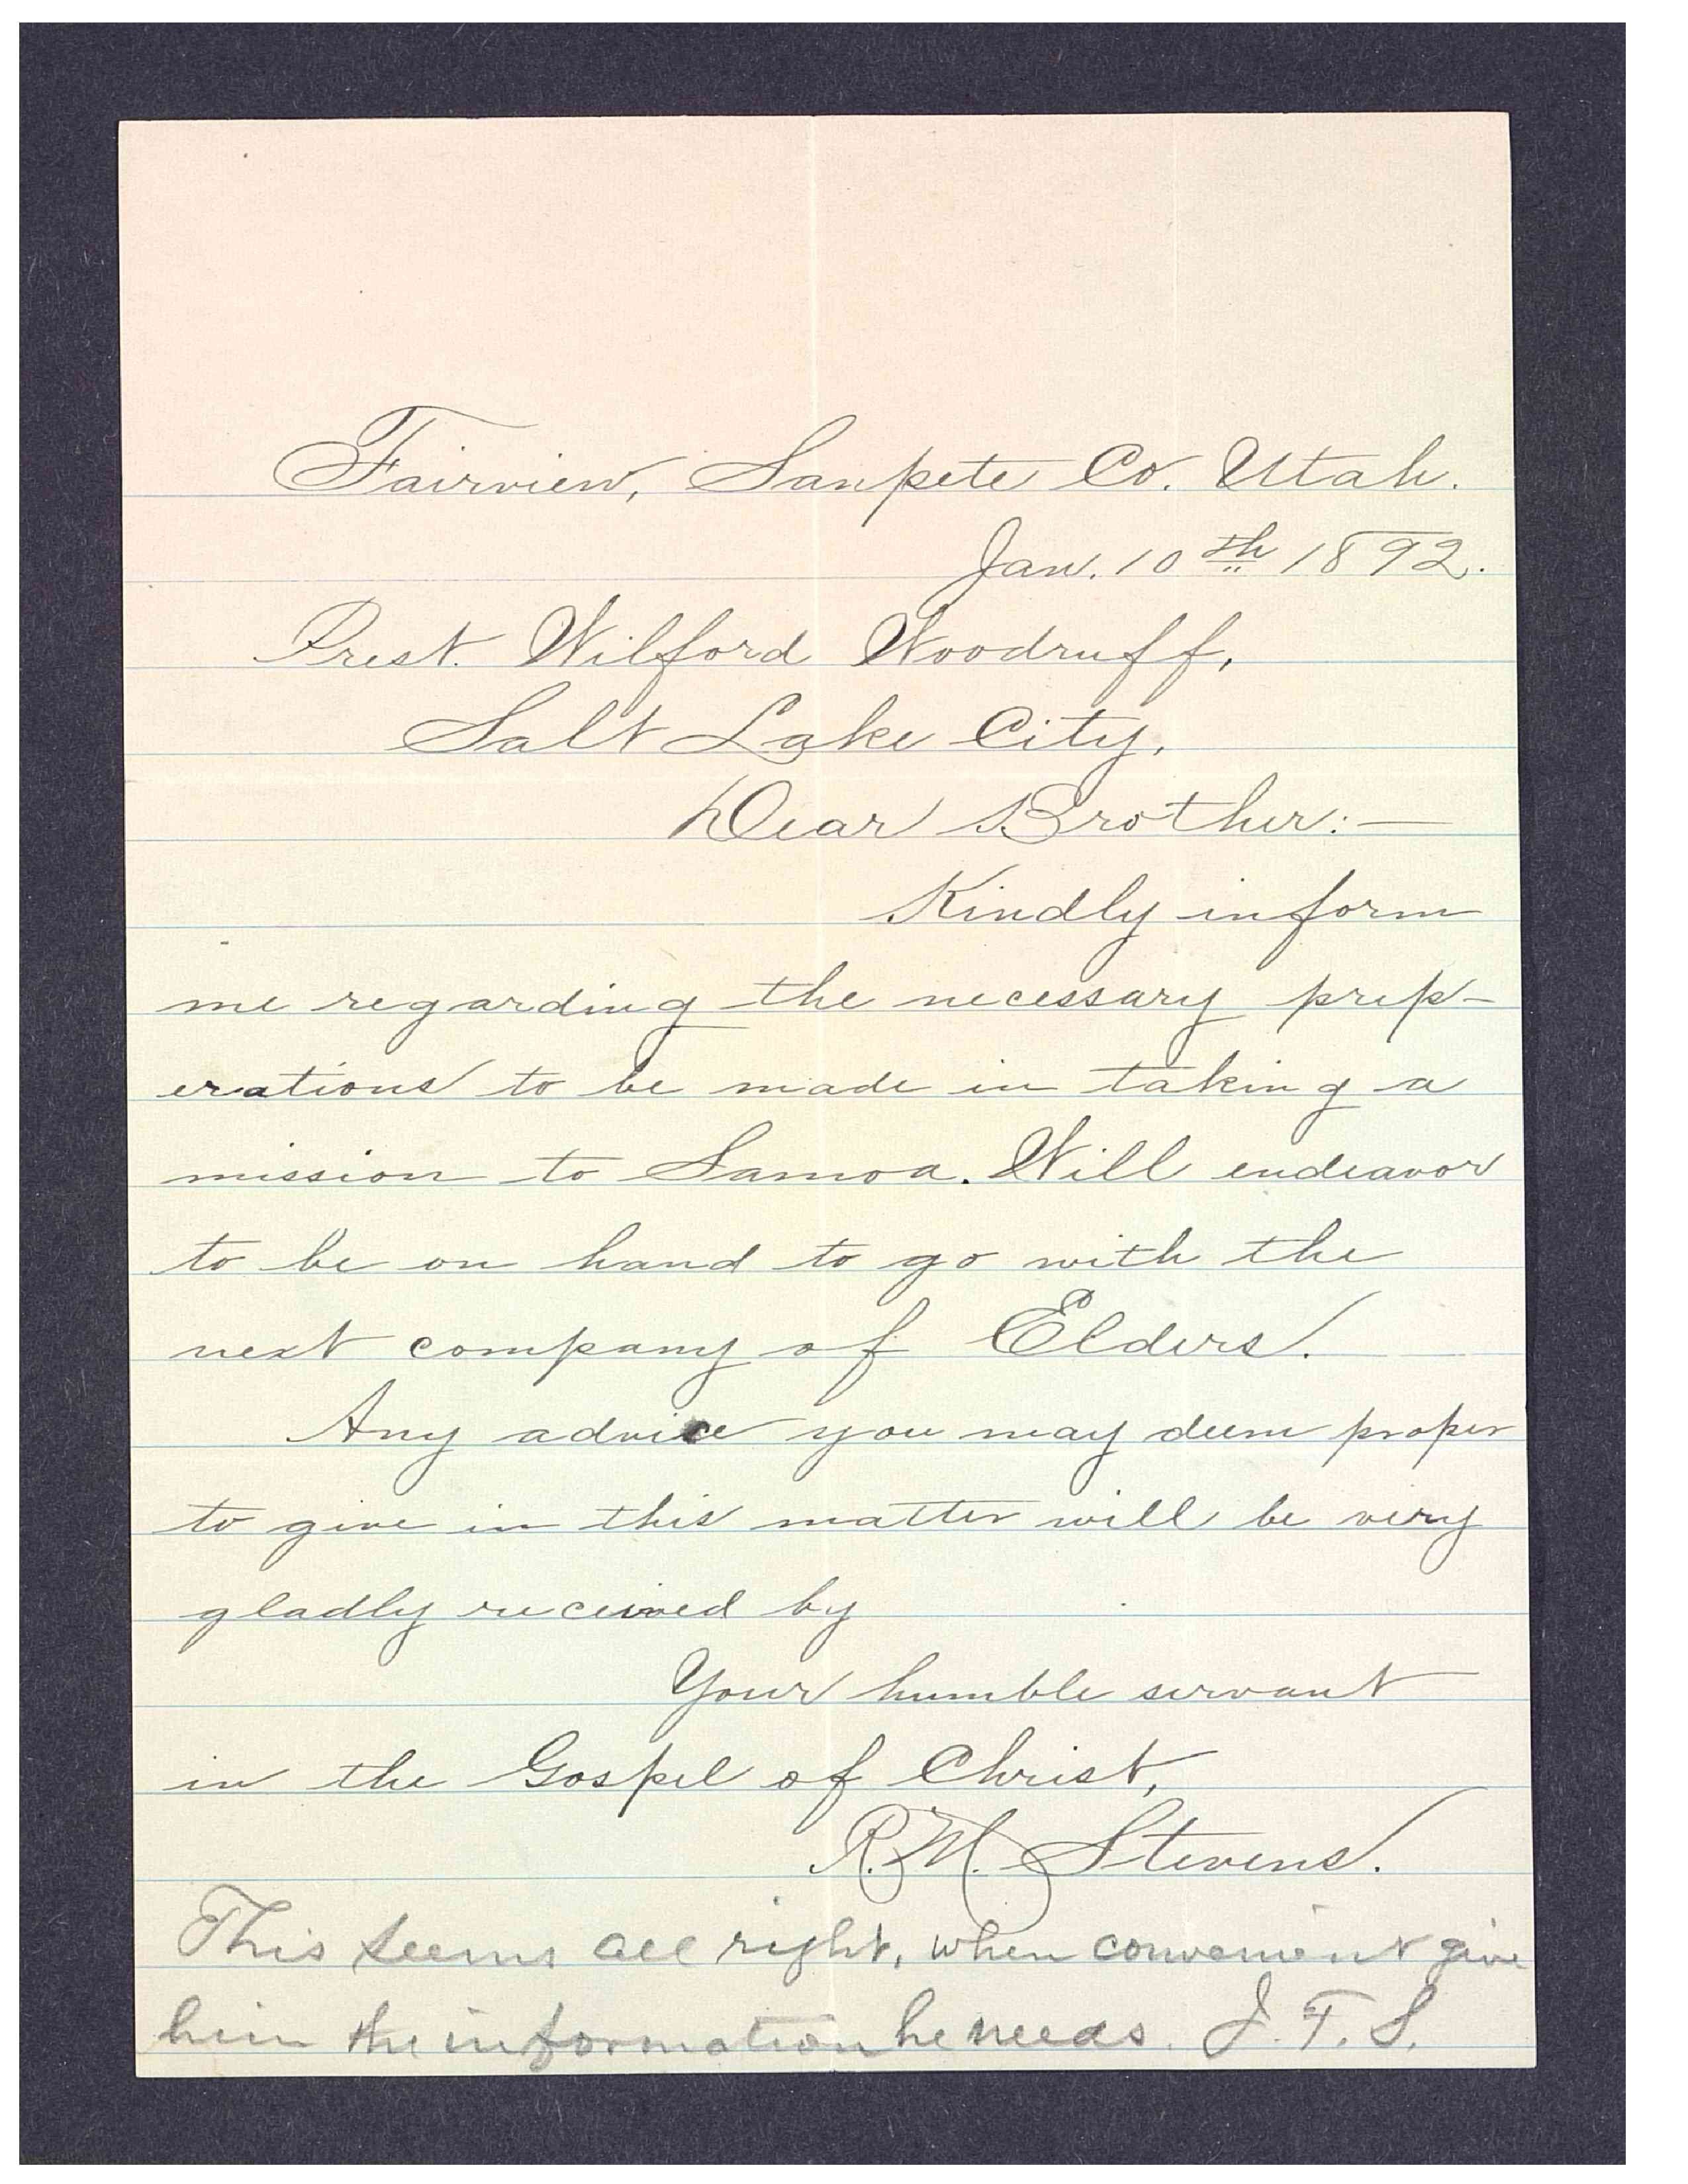 Fairview, Sanpete Co. Utah.
Jan. 10th 1892.
Prest. Wilford Woodruff,
Salt Lake City,
Dear Brother:—
Kindly inform
me regarding the necessary prep-
erations to be made in taking a
mission to Samoa. Will endeavor
to be on hand to go with the
next company of Elders.
Any advice you may deem proper
to give in this matter will be very
gladly received by
Your humble servant
in the Gospel of Christ,
R. M. Stevens.
This seems all right, when convenient give
him the information he needs. J. F. S.